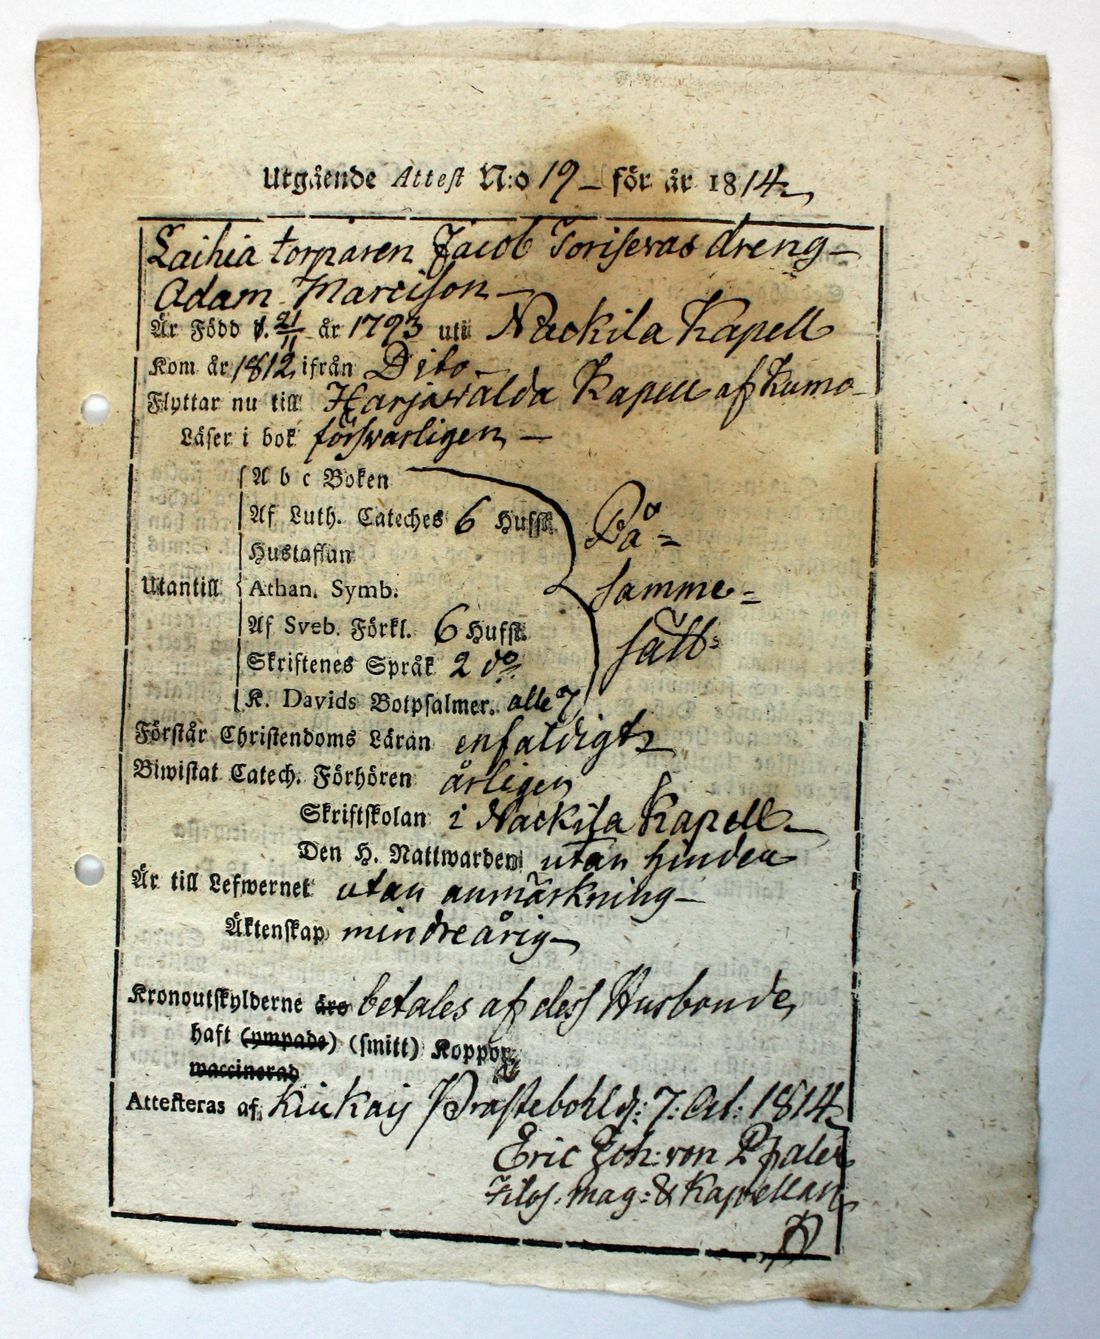 Utgående Attest N:o 19 – för år 1814
Laihia torparen Jacob dreng –
Adam Marcison –
Är Född d. 21/11 år 1793 uti Nackila Kapell
Kom år 1812 ifrån Dito –
Flyttar nu till Harjavalda Kapell af Kumo –
Läser i bok försvarligen –
A b c Boken
Af Luth. Cateches 6 Hufst. På =
Hustaflan
Utantill Athan. Symb. samme =
Af Sveb. Förkl. 6 Hufst. sätt
Skriftenes Språk 2 do
K. Davids Botpsalmer. alle 7
Förstår Christendoms Läran enfaldigt
Biwistat Catech. Förhören årligen
Skriftskolan i Nackila Kapell –
Den H. Nattwarden utan hinder
Är till Lefwernet utan anmärkning –
Äktenskap mindreårig –
Kronoutskylderne äro betales af dess Husbonde
haft (ympade) (smitt) Koppor
waccinerad
Attesteras af Kiukais Prästebohl d: 7: Oct: 1814
Eric Joh: von Pfaler
Filos. mag: & Kapellan